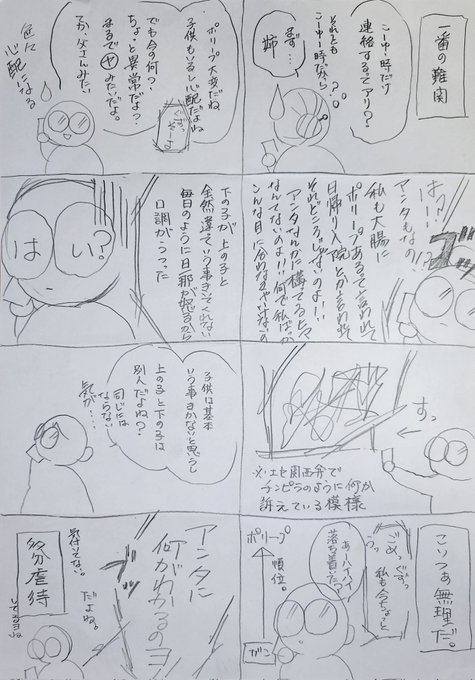 一番の難関
こーゆー時だけ
連絡するってアリ?
それとも
こーゆー時だから?
まず…
姉
はっ?!
アンタもなの!?
私も大腸に
ポリープあるって言われて
日帰り入院とか言われ
それどころじゃないのよ!!
アンタなんかに構ってるヒマ
なんてないのよ!!何で私ばっか
こんな目に
ブッ
すっ
※エセ関西弁で
チンピラのように何か
訴えている模様
こりゃ無理だ。
ごめ、ぐすっ
うっ 私も今ちょっと
あ、ハイハイ
落ち着いた?
ポリープ
順位。
ガン
ポリープ大変だね
子供もいるし心配だよね
ぐすっ
そーよ
でも今の何?
ちょっと異常だよ?
まるで みたいだよ。
お、父さんみたい
色々
心配になる
下の子が上の子と
全然違て言う事きいてくれない
毎日のように旦那が怒るから
口調がうつった
はい?
子供は基本
いう事きかないと思うし
上の子と下の子は
別人だよね?
同じには
ならない
気が…
アンタに
何がわかるのヨ
ブッ
だよね。
気付きそな。
多分虐待
してるよね